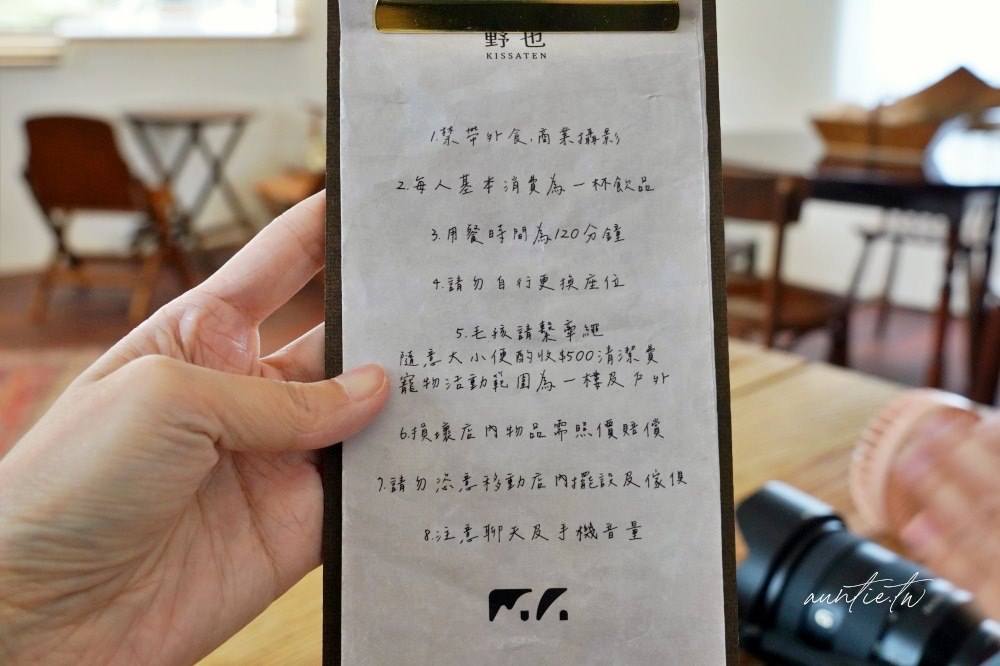 野也
KISSATEN
1.禁帶外食,商業攝影
2.每人基本消費為一杯飲品
3.用餐時間為120分鐘
4.請勿自行更換座位
5.毛孩請繫牽繩
隨意大小便酌收$500清潔費
寵物活動範圍為一樓及戶外
6.損壞店內物品需照價賠償
7.請勿恣意移動店內擺設及傢俱
8.注意聊天及手機音量
auntie.tw